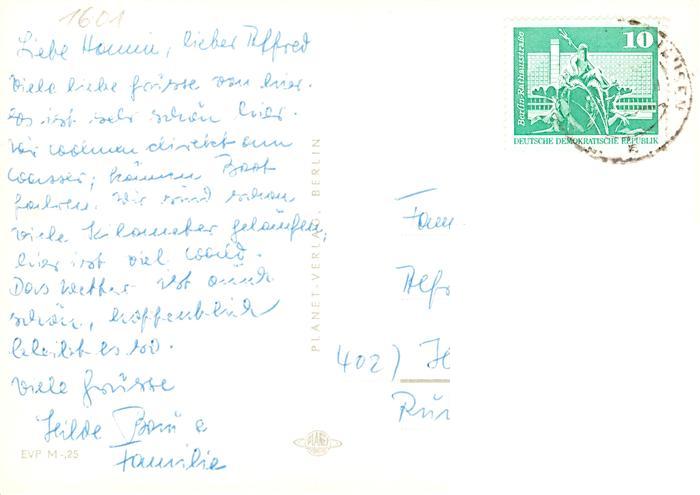 1601
Liebe Hanni, lieber Alfred
viele liebe Grüsse von hier.
Es ist sehr schön hier.
Wir wohnen direkt am
Wasser, können Boot
fahren. Wir sind schon
viele Kilometer gelaufen,
hier ist viel Wald.
Das Wetter ist auch
schön, hoffentlich
bleibt es so.
viele Grüsse
Hilde
Familie
EVP M -,25
PLANET-VERLAG, BERLIN
PLANET
Berlin-Rathausstraße
10
DEUTSCHE DEMOKRATISCHE REPUBLIK
Fam
Alfr
402) H